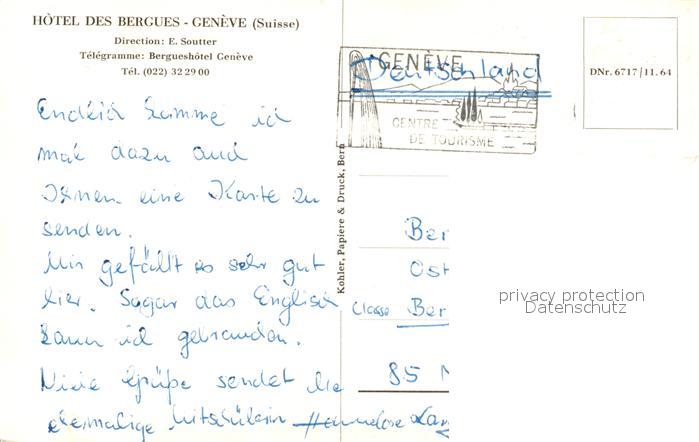 HÔTEL DES BERGUES - GENÈVE (Suisse)
Direction: E. Soutter
Télégramme: Bergueshôtel Genève
Tél. (022) 32 29 00
GENÈVE
CENTRE DE TOURISME
Deutschland
DNr. 6717/11.64
Kohler, Papiere & Druck, Bern
Endlich komme ich
mal dazu auch
Ihnen eine Karte zu
senden.
Mir gefällt es sehr gut
hier. Sogar das Englisch
kann ich gebrauchen.
Viele Grüße sendet die
ehemalige Mitschülerin Hannelore
Ber
Ost
Classe Ber
85 N
privacy protection
Datenschutz